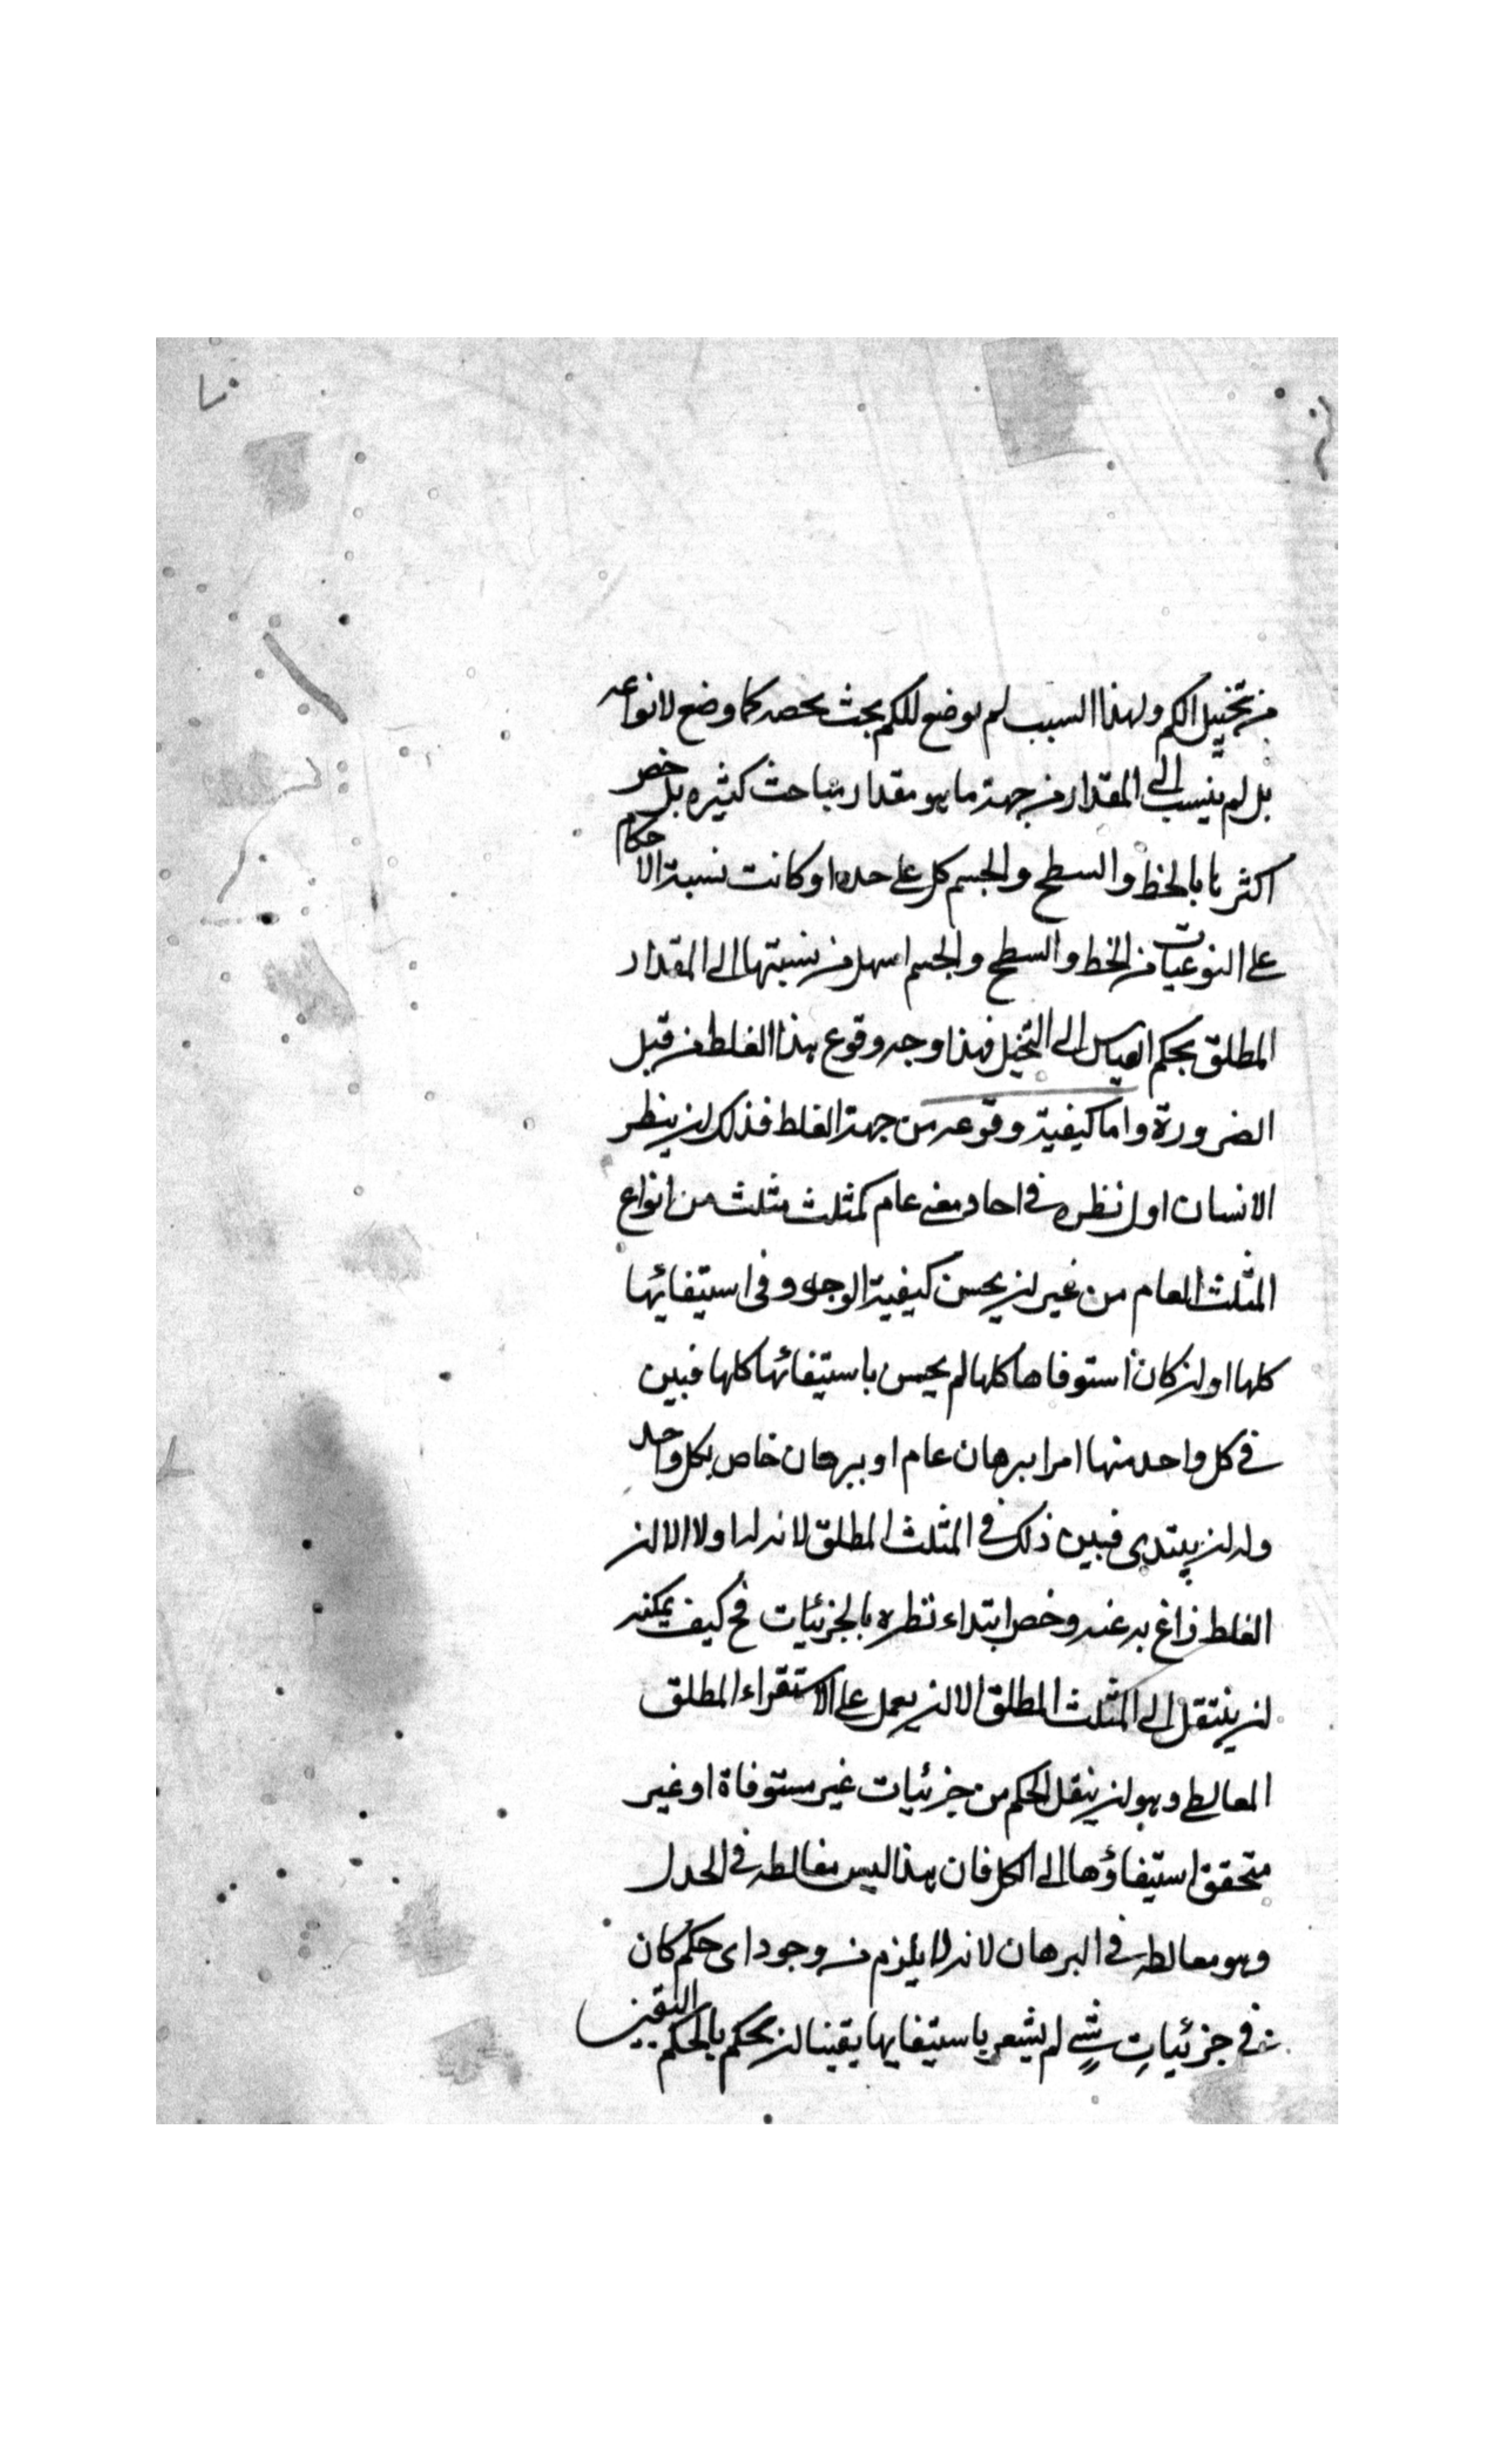 من تخييل الكم ولهذا السبب لم يوضع للكم بحث يخصه كما وضع لانواعه
بل لم ينسب الى المقدار من جهة ما هو مقدار مباحث كثيره بل خص
اكثرها بالخط والسطح والجسم كل على حده او كانت نسبة الاحكام
على النوعيات من الخط والسطح والجسم اسهل من نسبتها الى المقدار
المطلق بحكم القياس الى التخيل فهذا وجه وقوع هذا الغلط من قبل
الضرورة واما كيفية وقوعه من جهة الغلط فذلك ان ينظر
الانسان اول نظره فى احاد معنى عام كمثلث مثلث من انواع
المثلث العام من غير ان يحسن كيفية الوجه وفى استيفائها
كلها او ان كان استوفاها كلها لم يحس باستيفائها كلها فبين
فى كل واحد منها امرا ببرهان عام او ببرهان خاص بكل واحد
وله ان يبتدى فبين ذلك فى المثلث المطلق لانه له اولا الا ان
الغلط زاغ به عنه وخص ابتداء نظره بالجزئيات فح كيف يمكنه
ان ينتقل الى المثلث المطلق الا ان يعمل على الاستقراء المطلق
المعالطى وهو ان ينقل الحكم من جزئيات غير مستوفاة او غير
متحقق استيفاؤها الى الكل فان هذا ليس مغالطه فى الجدل
وهو معالطه فى البرهان لانه لا يلزم من وجود اى حكم كان
فى جزئيات شىء لم يشعر باستيفايها يقينا ان يحكم بالحكم اليقين